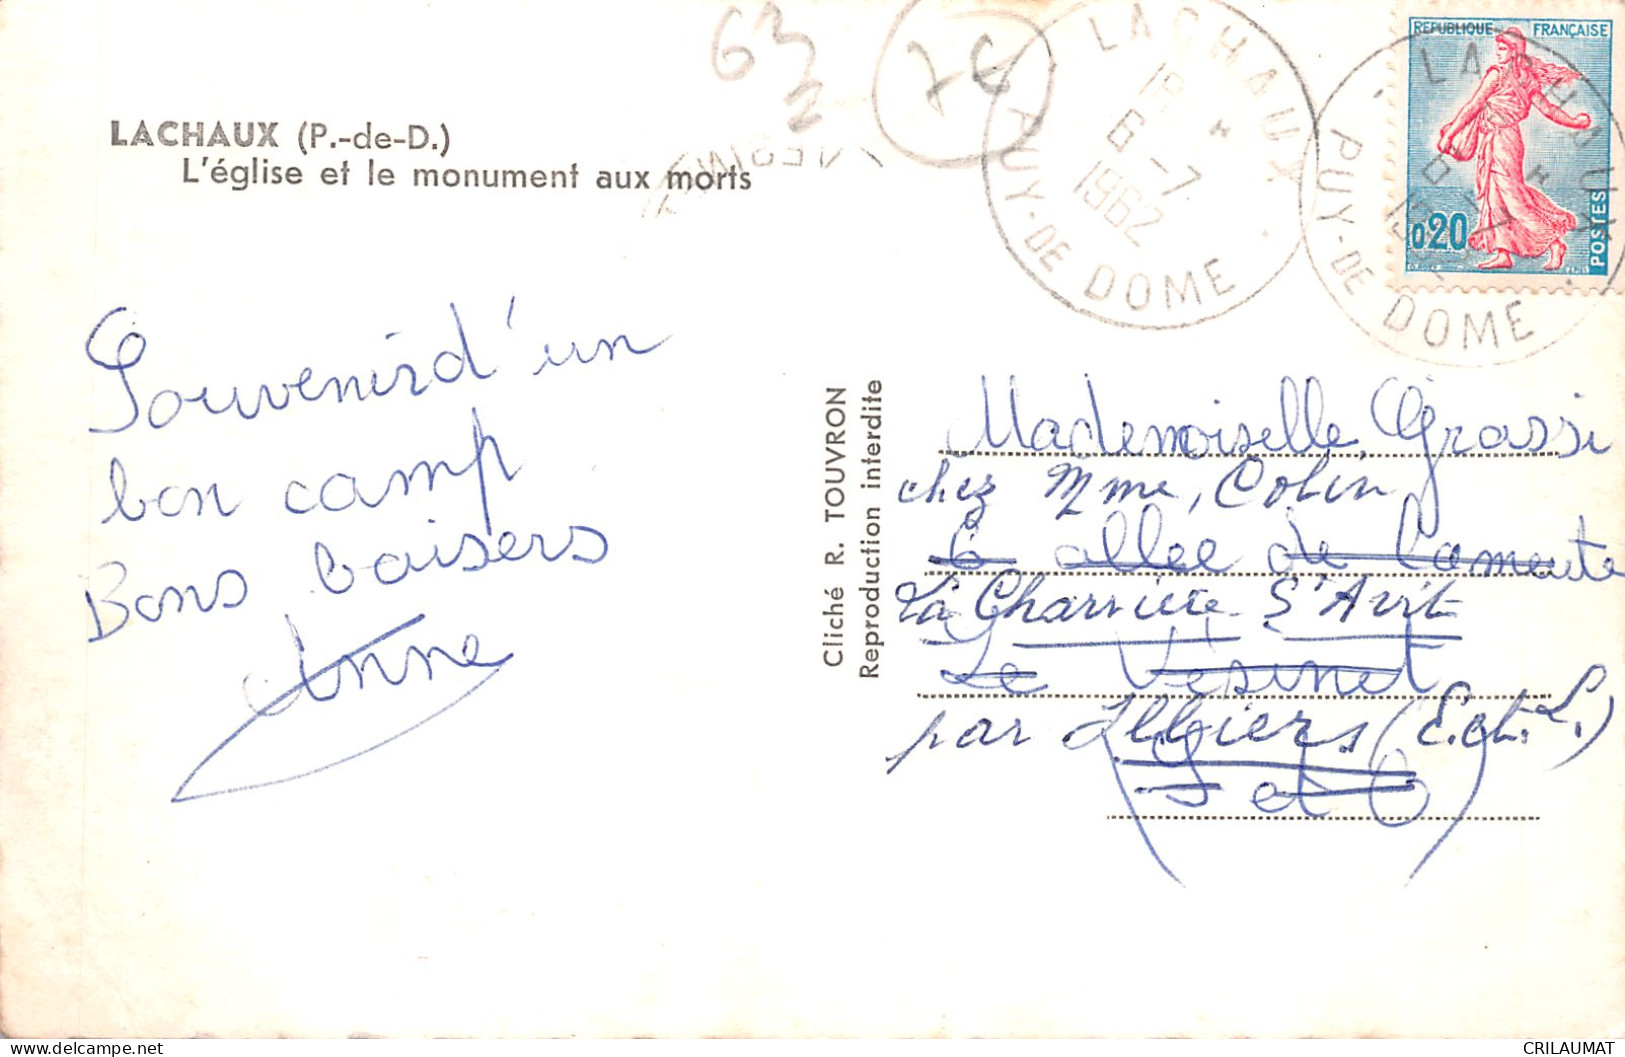 LACHAUX (P.-de-D.)
L'église et le monument aux morts
63
2
7€
LACHAUX
18 *
6-7
1962
PUY-DE DOME
LACHAUX
18 *
6-7
1962
PUY-DE DOME
REPUBLIQUE FRANÇAISE
0,20
POSTES
Souvenir d'un
bon camp
Bons baisers
Anne
Cliché R. TOUVRON
Reproduction interdite
Mademoiselle Grassi
chez Mme, Colin
6 allée de
La Charrière St Avit
Le Vésinet
par Illiers (E.et.L.)
(S et O)
CRILAUMAT